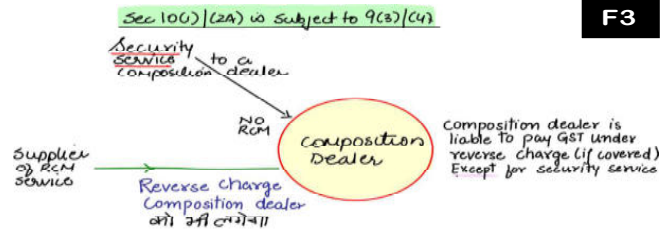 Sec 10(1)/(2A) is subject to 9(3)/(4)
F3
Security
service to a
composition dealer
NO
RCM
Composition
Dealer
Composition dealer is
liable to pay GST under
reverse charge (if covered)
Except for security service
Supplier
of RCM
service
Reverse Charge
Composition dealer
को भी लगेगा